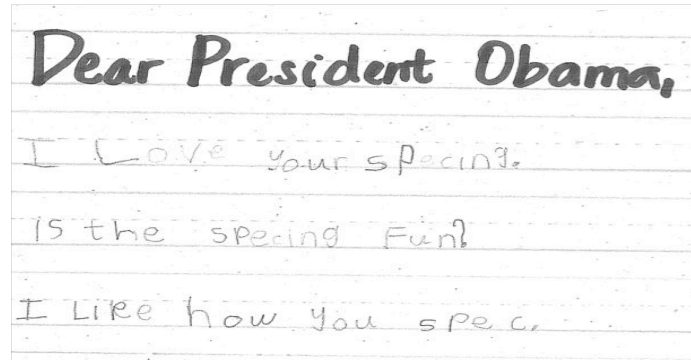 Dear President Obama,
I Love your specing.
is the specing Fun?
I Like how you spec.